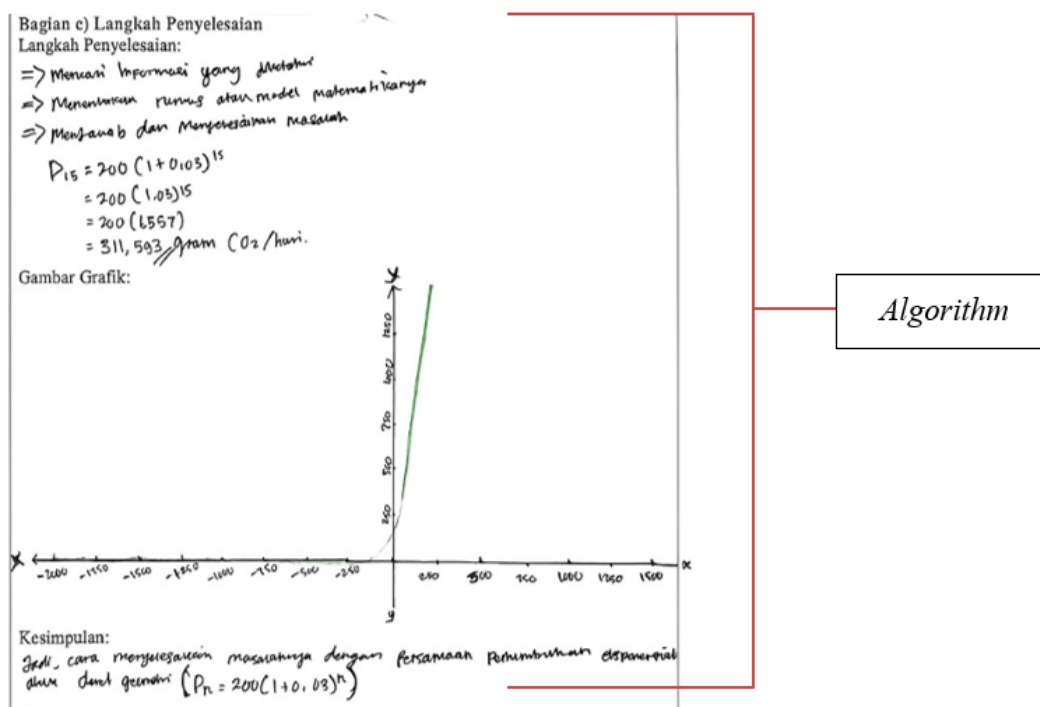 Bagian c) Langkah Penyelesaian
Langkah Penyelesaian:
=> Mencari Informasi yang diketahui
=> Menentukan rumus atau model matematikanya
=> Menjawab dan Menyelesaikan masalah
P15 = 200 (1 + 0,03)^15
= 200 (1,03)^15
= 200 (1,557)
= 311,593 gram CO2/hari.
Gambar Grafik:
y
1250
1000
750
500
250
x -2000 -1750 -1500 -1250 -1000 -750 -500 -250 250 500 750 1000 1250 1500 x
y
Kesimpulan:
Jadi, cara menyelesaikan masalahnya dengan Persamaan Pertumbuhan eksponensial
deret geometri (Pn = 200(1+0,03)^n)
Algorithm